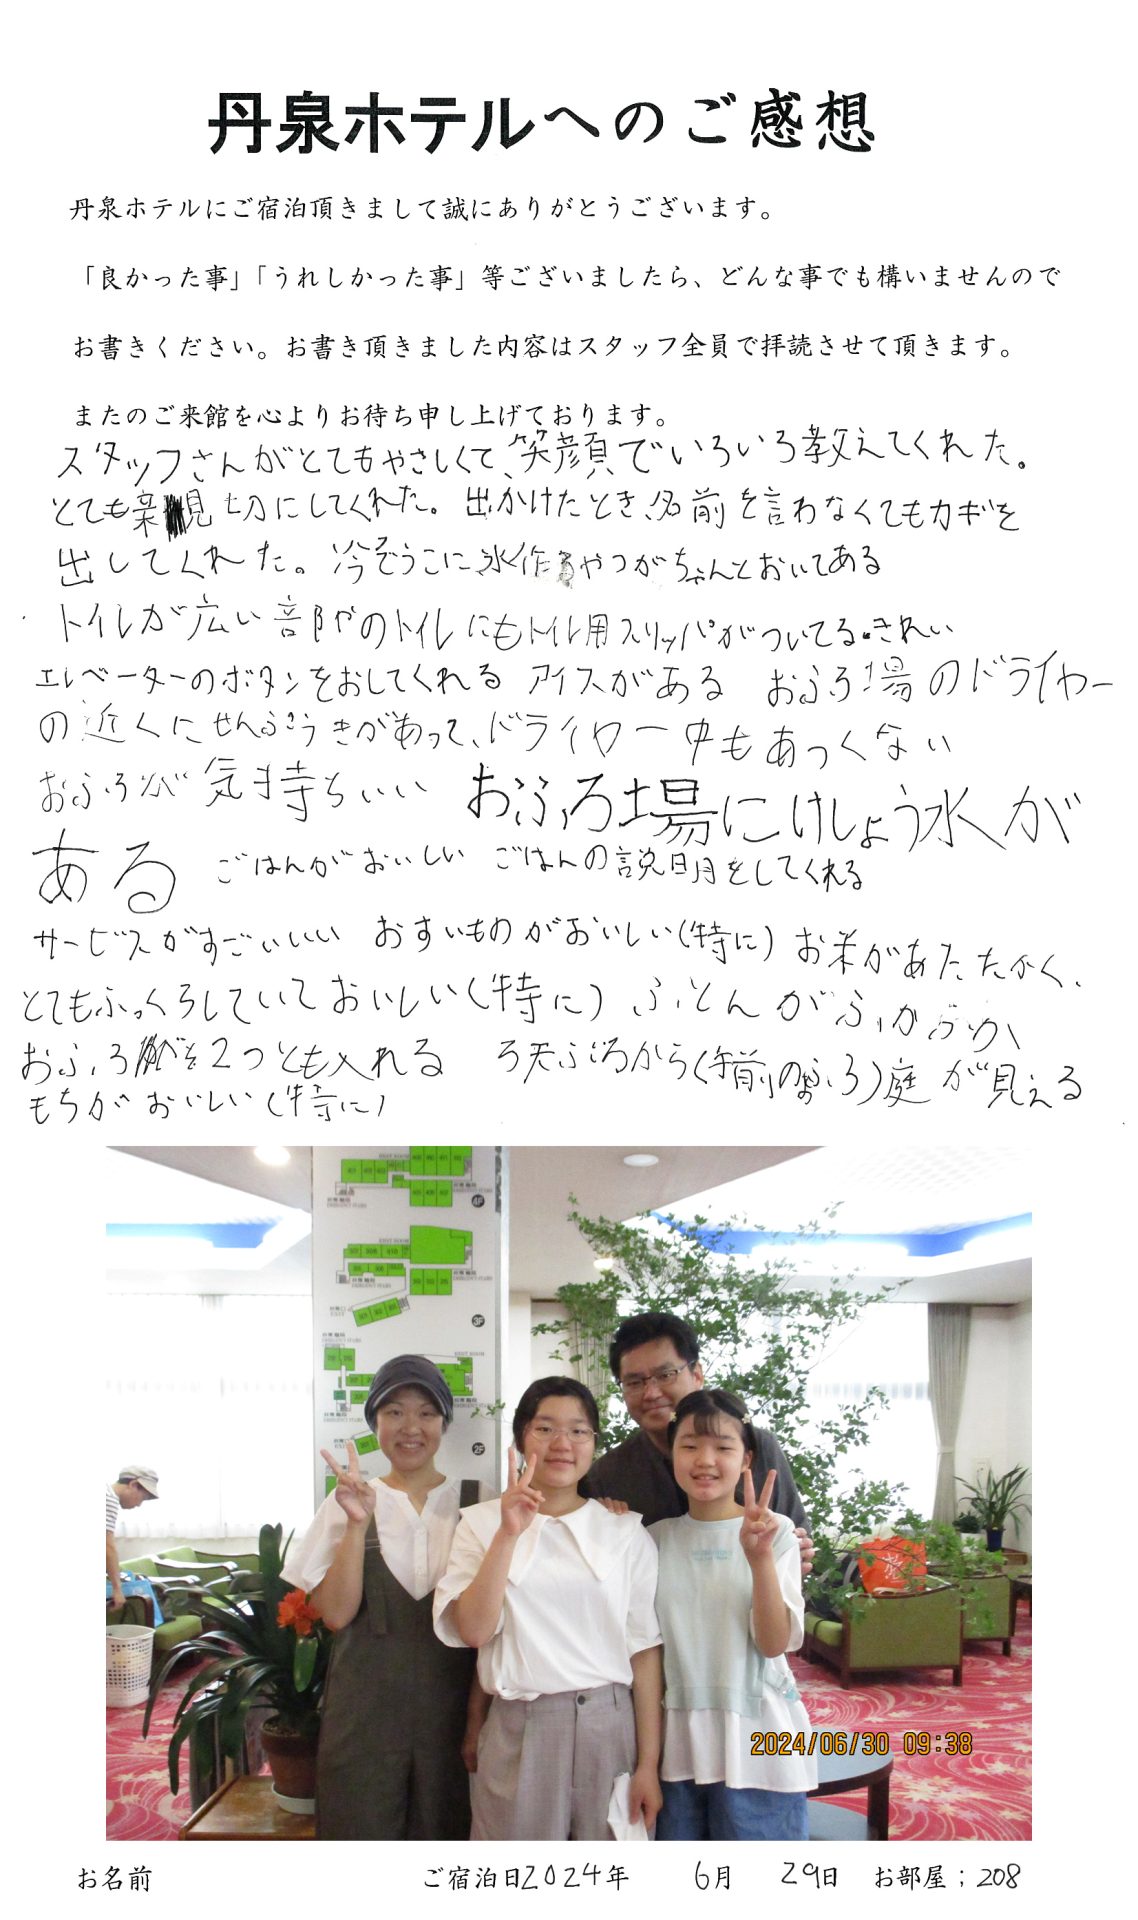 丹泉ホテルへのご感想
丹泉ホテルにご宿泊頂きまして誠にありがとうございます。
「良かった事」「うれしかった事」等ございましたら、どんな事でも構いませんので
お書きください。お書き頂きました内容はスタッフ全員で拝読させて頂きます。
またのご来館を心よりお待ち申し上げております。
スタッフさんがとてもやさしくて、笑顔でいろいろ教えてくれた。
とても親切にしてくれた。出かけたとき、名前を言わなくてもカギを
出してくれた。冷ぞうこに氷作るやつがちゃんとおいてある
トイレが広い 部屋のトイレにもトイレ用スリッパがついてる。きれい
エレベーターのボタンをおしてくれる アイスがある おふろ場のドライヤー
の近くにせんぷうきがあって、ドライヤー中もあつくない
おふろが気持ちいい おふろ場にけしょう水が
ある ごはんがおいしい ごはんの説明をしてくれる
サービスがすごいいい おすいものがおいしい(特に) お米があたたかく、
とてもふっくらしていておいしい(特に) ふとんがふかふか
おふろを2つとも入れる ろ天ぶろから(午前のおふろ)庭が見える
もちがおいしい(特に)
REST ROOM
4F
REST ROOM
3F
REST ROOM
2F
2024/06/30 09:38
お名前 ご宿泊日2024年 6月 29日 お部屋；208